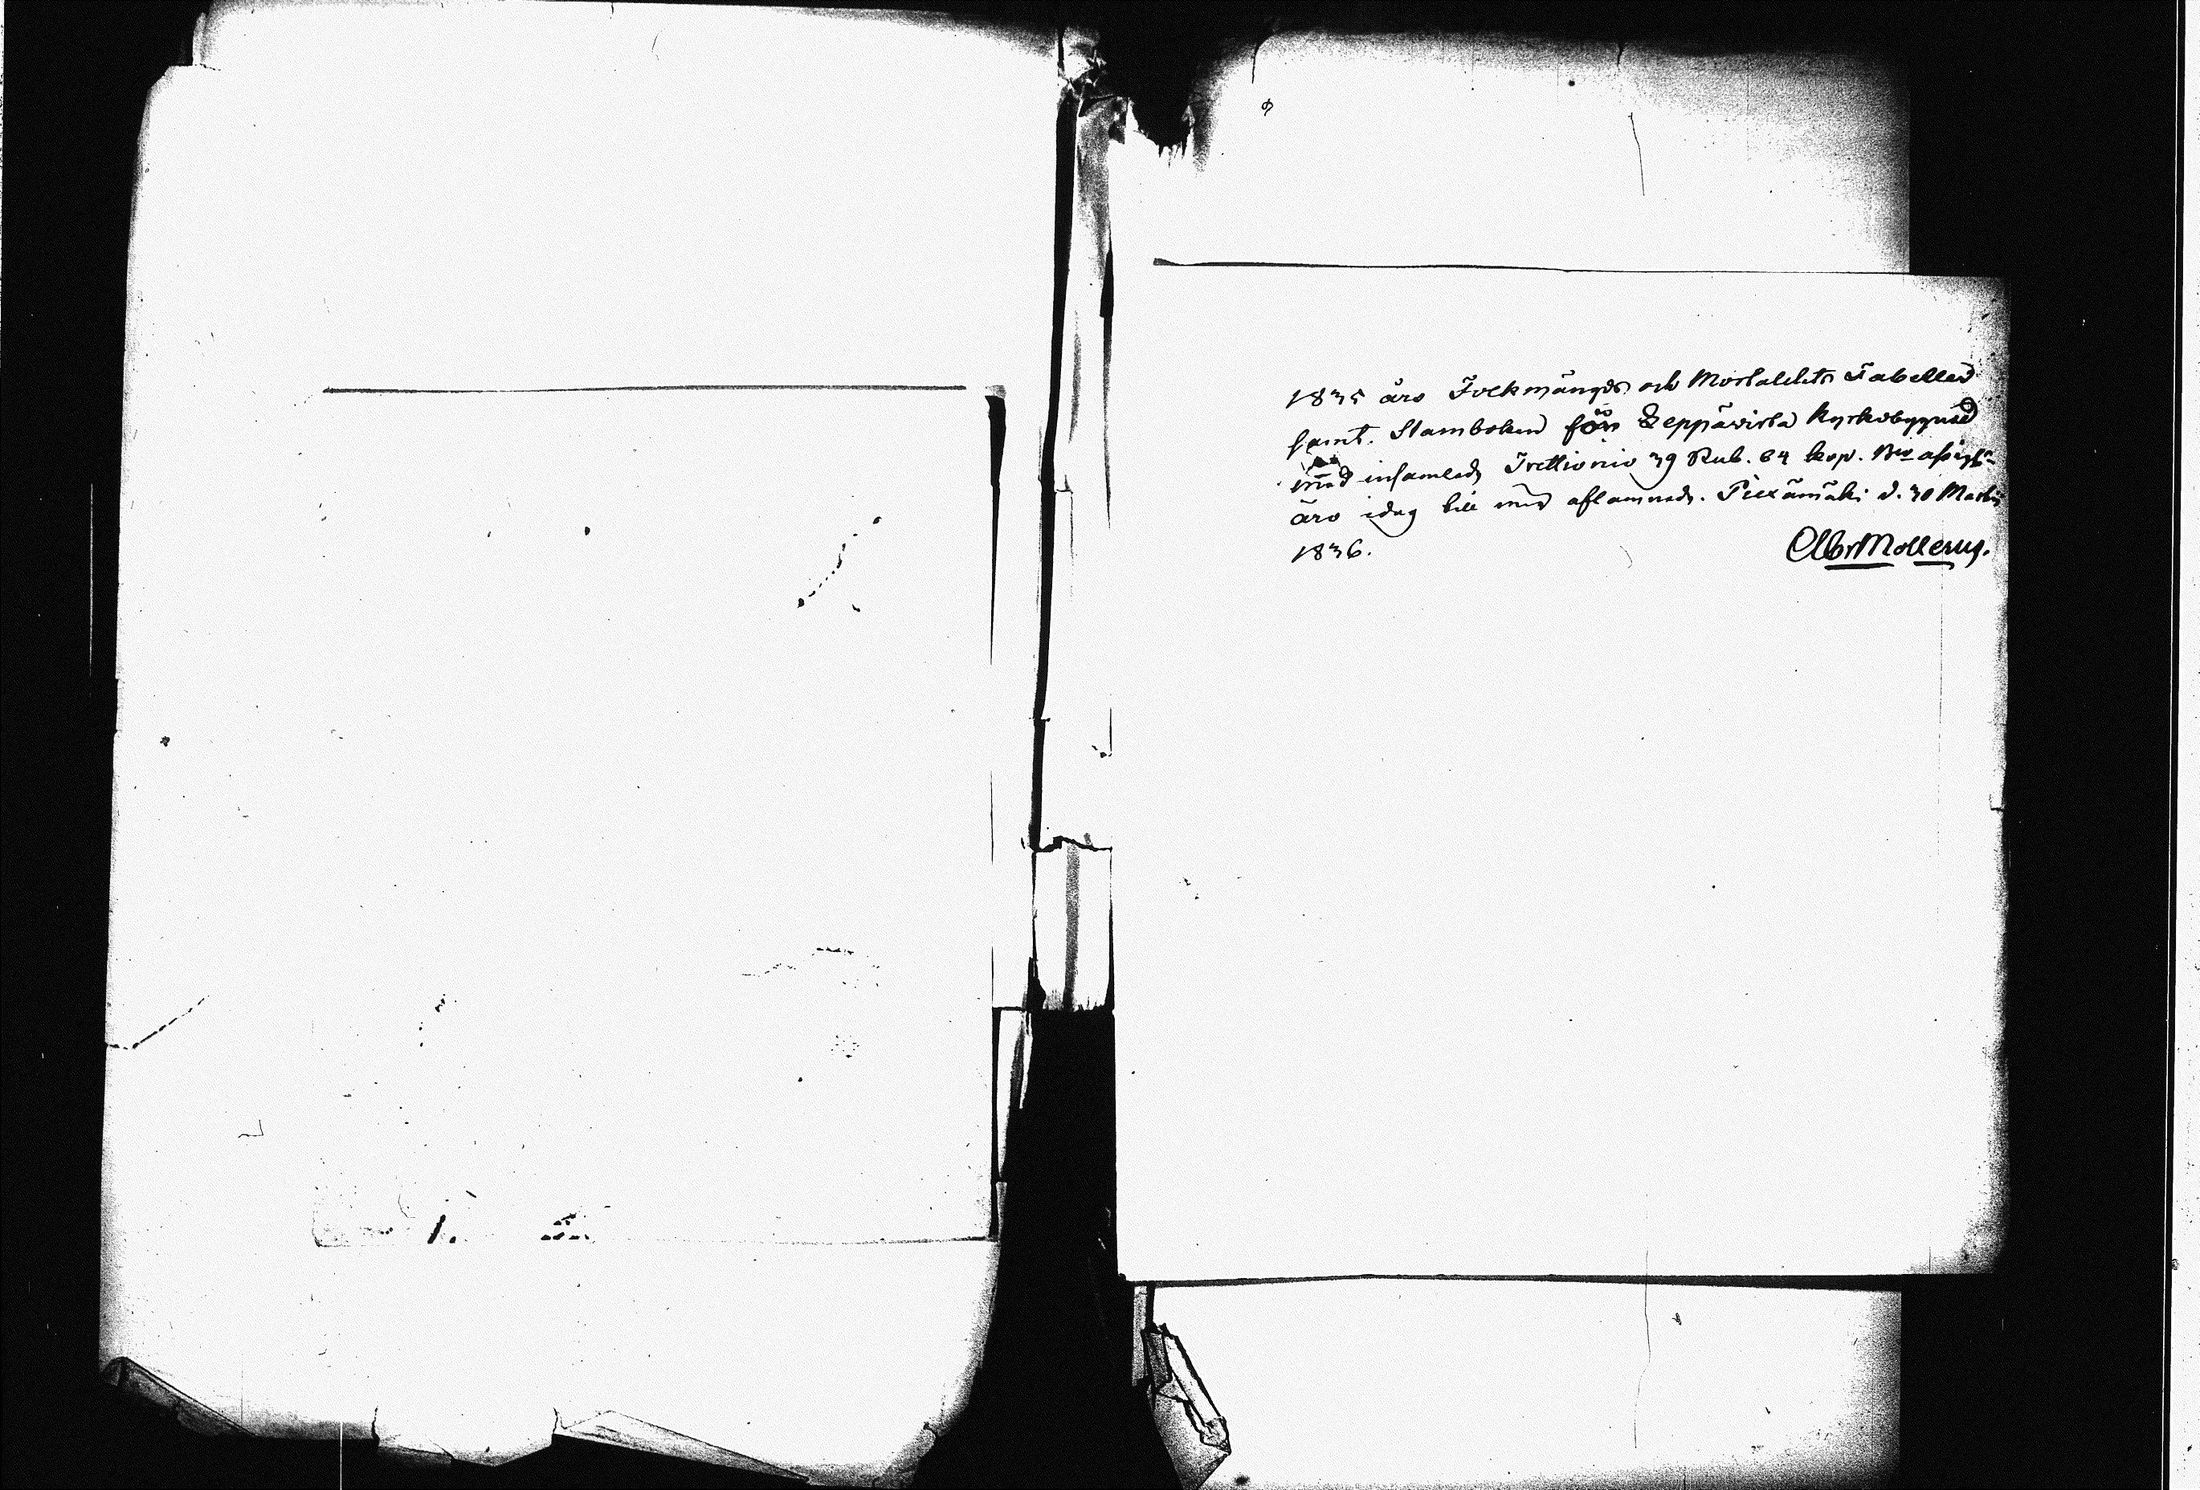 1835 äro Folkmängds och Mortalitets Tabeller
samt Stamboken för Leppävirta Kyrkobyggnad
med insamlade Trettionio 39 Rub. 64 kop. Bco assign:
äro idag till mig aflämnade. Piexämäki d. 30 Martii
1836. Albr Mollerus.